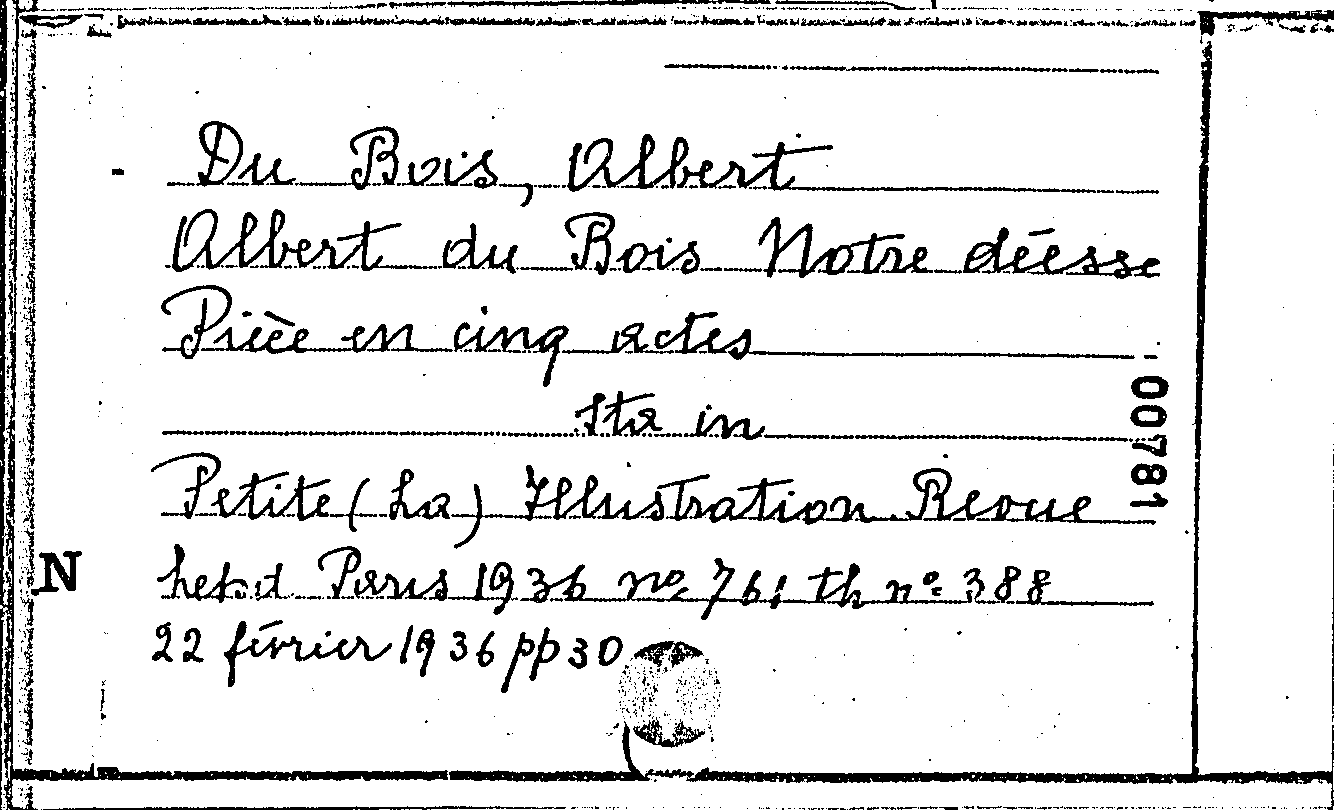 Du Bois, Albert
Albert du Bois Notre déesse
Pièce en cinq actes
Sta in
Petite (La) Illustration Revue
hebd Paris 1936 no. 761 th no. 388
22 février 1936 pp 30
00781
N